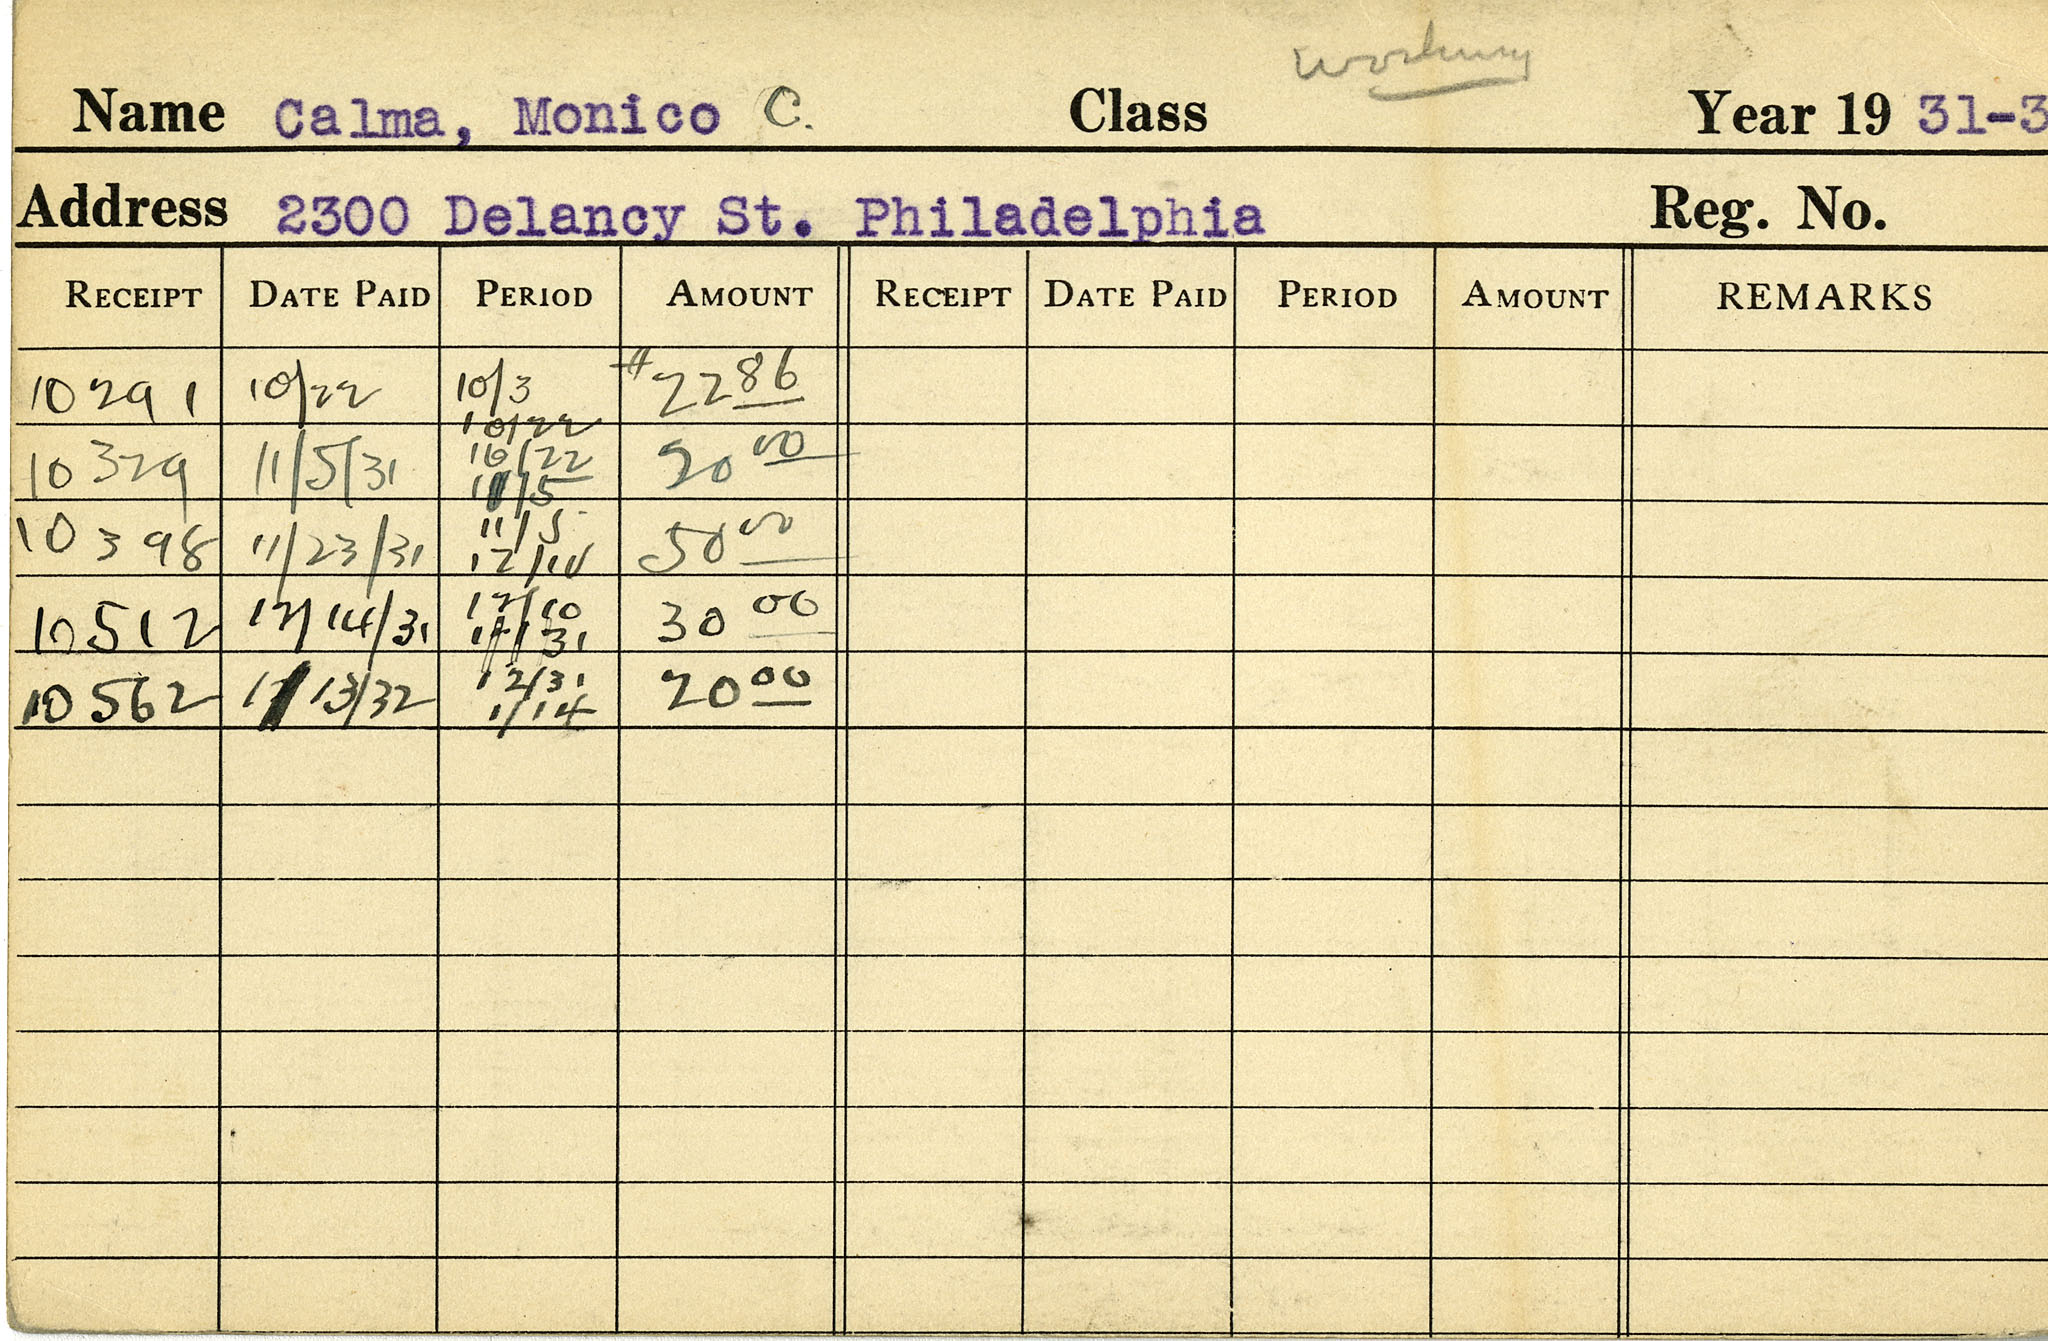 Working
Name Calma, Monico C. Class Year 19 31-3
Address 2300 Delancy St. Philadelphia Reg. No.
RECEIPT DATE PAID PERIOD AMOUNT RECEIPT DATE PAID PERIOD AMOUNT REMARKS
10291 10/22 10/3 $22 86
10/22
10329 11/5/31 10/22 20 00
11/5
10398 11/23/31 11/5 50 00
12/10
10512 12/14/31 12/10 30 00
12/31
10562 1/13/32 12/31 20 00
1/14